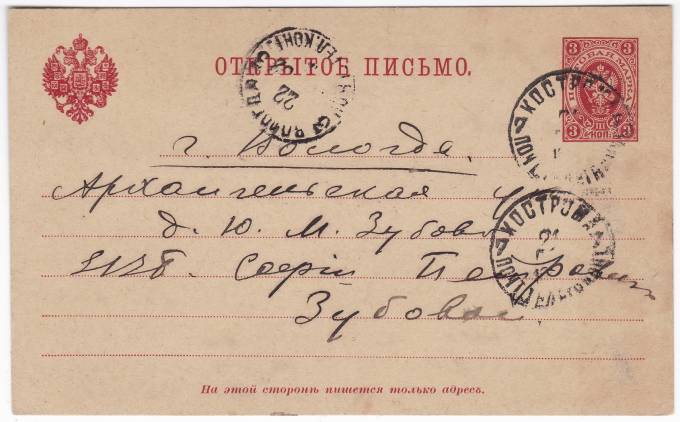 ОТКРЫТОЕ ПИСЬМО.
3 ПОЧТОВАЯ МАРКА 3
3 КОП. 3
КОСТРОМА
ВОЛОГДА
22
г. Вологда.
Архангельская у
д. Ю. М. Зубова
ЕВБ. Софiи Петровнѣ
Зубовой
КОСТРОМА
На этой сторонѣ пишется только адресъ.